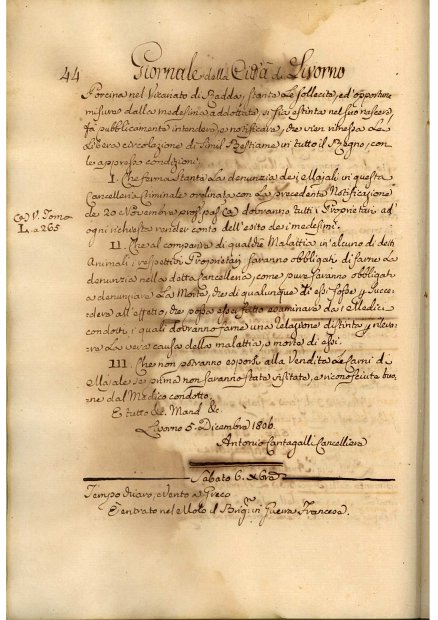 44 Giornale della Città di Livorno
Porcina nel Vicariato di Radda, stante Le sollecite, ed' opportune
misure dalla medesima adottate, si sia estinta nel suo nascere,
fà pubblicamente intendere, e notificare, che vien rimessa La
Libera circolazione di simil Bestiame in tutto il Regno, con
le appresso condizioni;
I. Che ferma stante La denunzia dei Majali in questa
Cancelleria Criminale ordinata con La precedente Notificazione
de 20 Novembre pros. pas. (a) dovranno tutti i Proprietari ad
ogni richiesta render conto dell'esito dei medesimi.
(a) V. Tomo
L. a 265
II. Che al comparire di qualche Malattia in alcuno di detti
Animali i respettivi Proprietari saranno obbligati di farne La
denunzia nella detta Cancelleria, come pure saranno obbligati
a denunziare La Morte, che di qualunque di essi fosse per succe-
dere all'effetto, che possa essere fatto esaminare da i Medici
condotti i quali dovranno farne una Relazione distinta, e rileve-
ra La vera causa della malattia, e morte di essi.
III. Che non potranno esporsi alla Vendita Le Carni di
Majale se prima non saranno state visitate, e riconosciute buo-
ne dal Medico condotto.
E tutto &c. Mand. &c.
Livorno 5. Dicembre 1806.
Antonio Cantagalli Cancelliere
Sabato 6. Xbre
Tempo chiaro, e Vento a Greco
È entrato nel Molo il Brig.ⁿ in Guerra Francese.